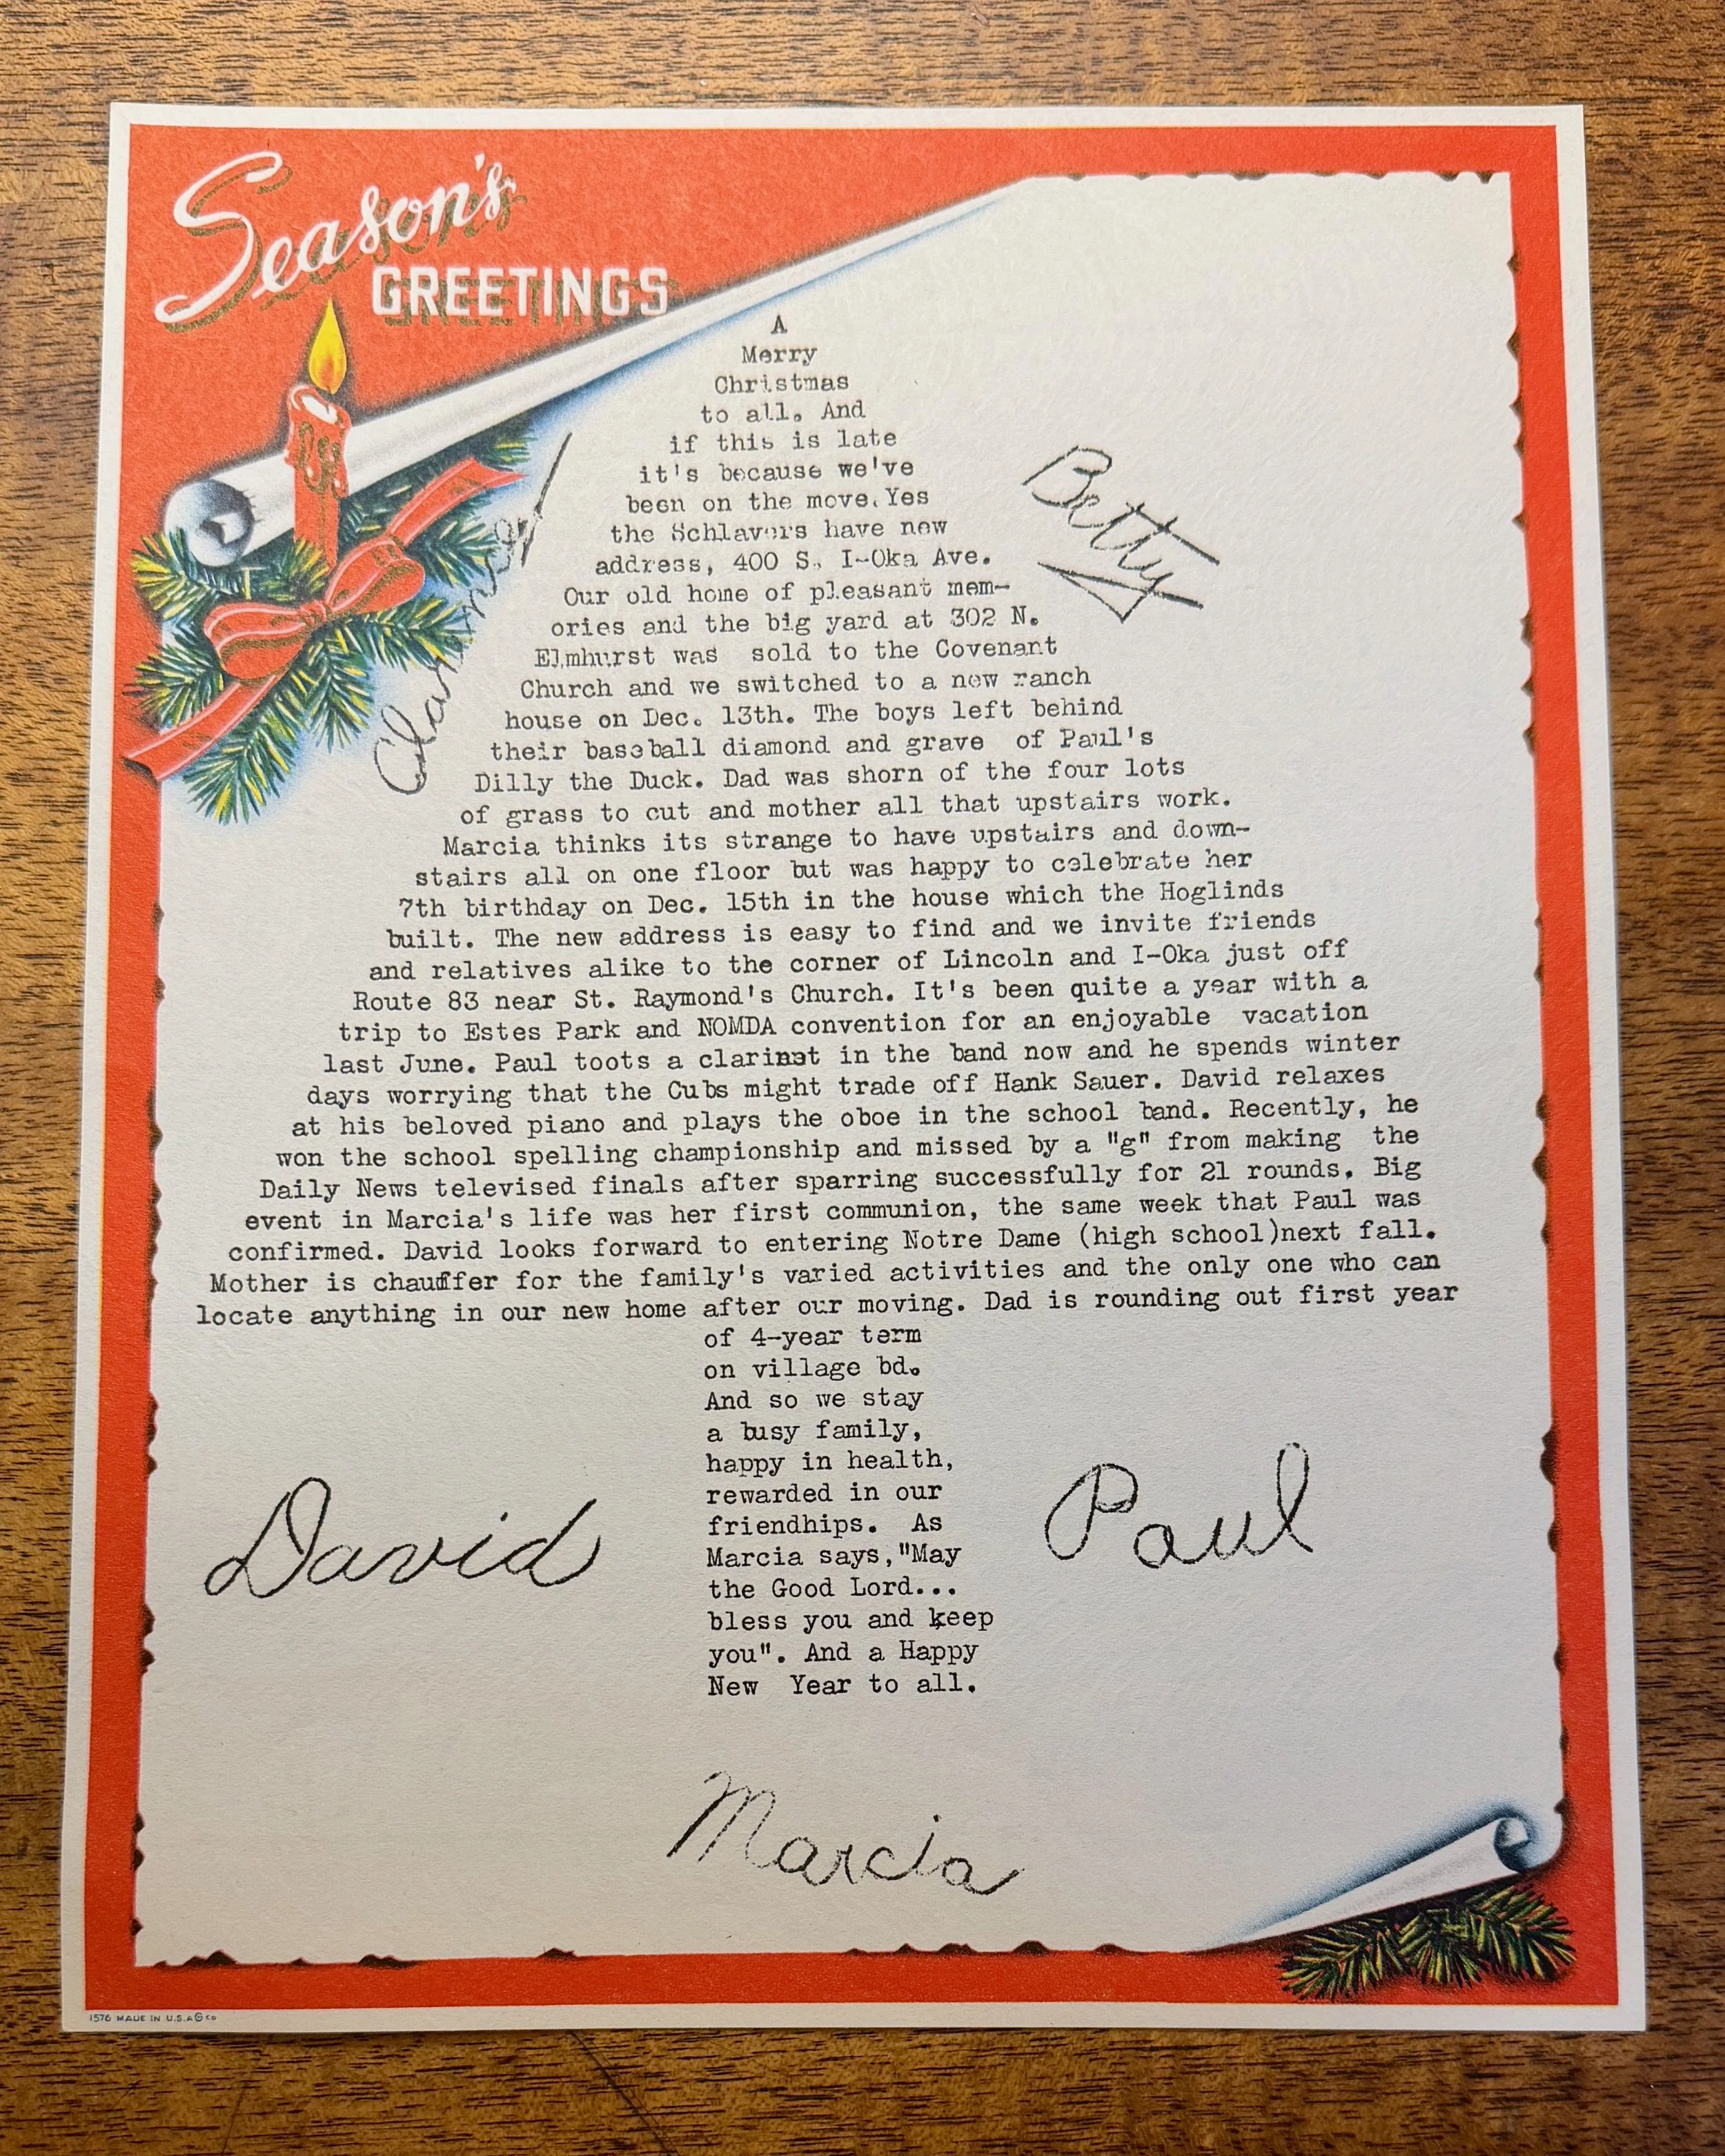 Season's
GREETINGS
A
Merry
Christmas
to all. And
if this is late
it's because we've
been on the move. Yes
the Schlavers have new
address, 400 S. I-Oka Ave.
Our old home of pleasant mem-
ories and the big yard at 302 N.
Elmhurst was sold to the Covenant
Church and we switched to a new ranch
house on Dec. 13th. The boys left behind
their baseball diamond and grave of Paul's
Dilly the Duck. Dad was shorn of the four lots
of grass to cut and mother all that upstairs work.
Marcia thinks its strange to have upstairs and down-
stairs all on one floor but was happy to celebrate her
7th birthday on Dec. 15th in the house which the Hoglinds
built. The new address is easy to find and we invite friends
and relatives alike to the corner of Lincoln and I-Oka just off
Route 83 near St. Raymond's Church. It's been quite a year with a
trip to Estes Park and NOMDA convention for an enjoyable vacation
last June. Paul toots a clarinet in the band now and he spends winter
days worrying that the Cubs might trade off Hank Sauer. David relaxes
at his beloved piano and plays the oboe in the school band. Recently, he
won the school spelling championship and missed by a "g" from making the
Daily News televised finals after sparring successfully for 21 rounds. Big
event in Marcia's life was her first communion, the same week that Paul was
confirmed. David looks forward to entering Notre Dame (high school)next fall.
Mother is chauffer for the family's varied activities and the only one who can
locate anything in our new home after our moving. Dad is rounding out first year
of 4-year term
on village bd.
And so we stay
a busy family,
happy in health,
rewarded in our
friendhips. As
Marcia says,"May
the Good Lord...
bless you and keep
you". And a Happy
New Year to all.
Clarence
Betty
David
Paul
Marcia
1576 MADE IN U.S.A. G CO